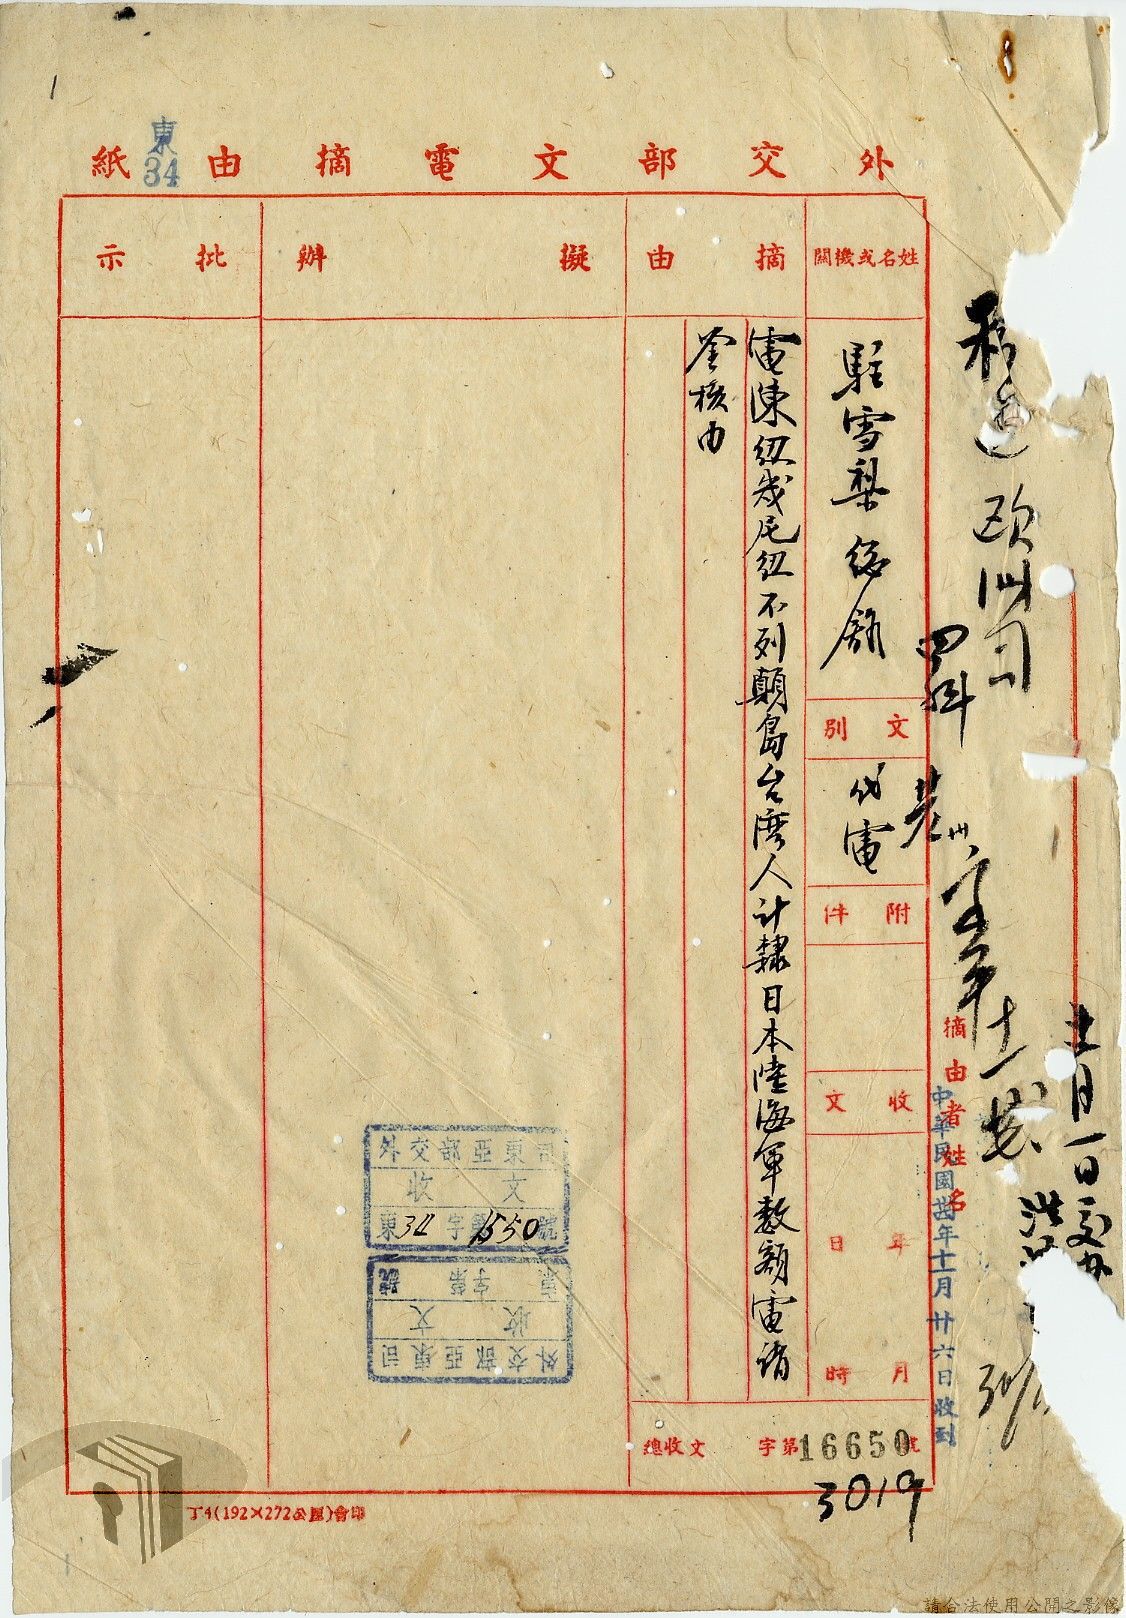 東
34
外交部文電摘由紙
姓名或機關
摘由
擬辦
批示
駐雪梨總領館
電陳紐幾尼紐不列顛島台灣人計隸日本陸海軍數額電請
鑒核由
文別
代電
附件
收文
年
月
日
時
總收文
字第16650號
3019
摘由者姓名
中華民國卅四年十一月廿六日收到
移送
歐洲司
四科
十一
外交部亞東司
收文
東34字第1550號
外交部亞東司
收文
東字第號
丁4(192×272公厘)會印
請合法使用公開之影像